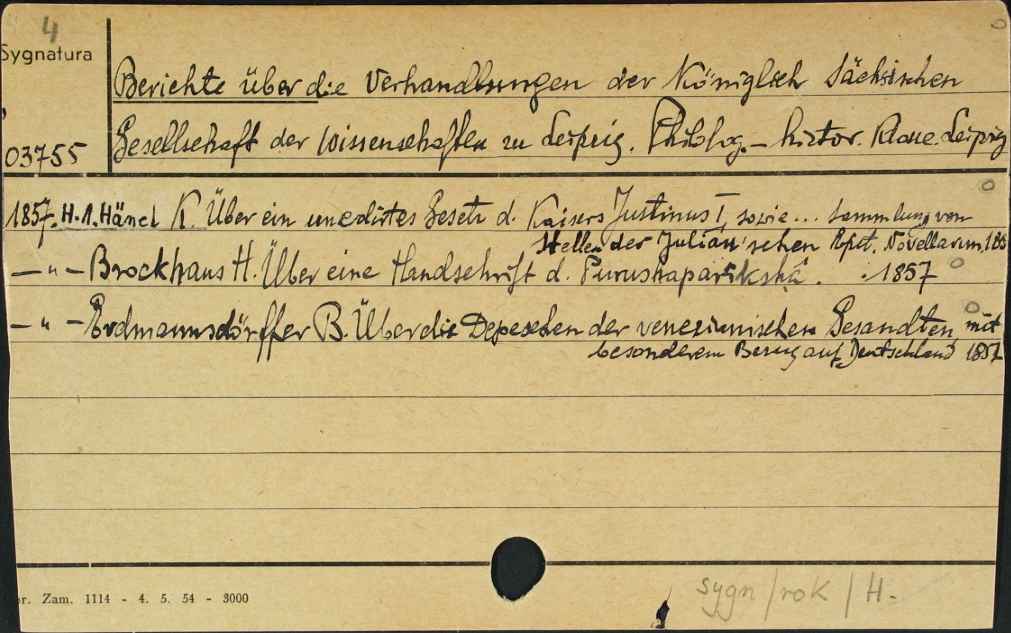 4
Sygnatura
Berichte über die Verhandlungen der Königlich Sächsischen
03755 Gesellschaft der Wissenschaften zu Leipzig. Philolog. - histor. Klasse. Leipzig
1857. H. 1. Hänel K. Über ein unediertes Gesetz d. Kaisers Justinus I, sowie... Sammlung von
Stellen der Julian'schen Novellarum. 185
— " — Brockhaus H. Über eine Handschrift d. Purushaparîkshâ. 1857
— " — Erdmannsdörffer B. Über die Depeschen der venezianischen Gesandten mit
besonderem Bezug auf Deutschland 1857
r. Zam. 1114 - 4. 5. 54 - 3000
sygn/rok/H.